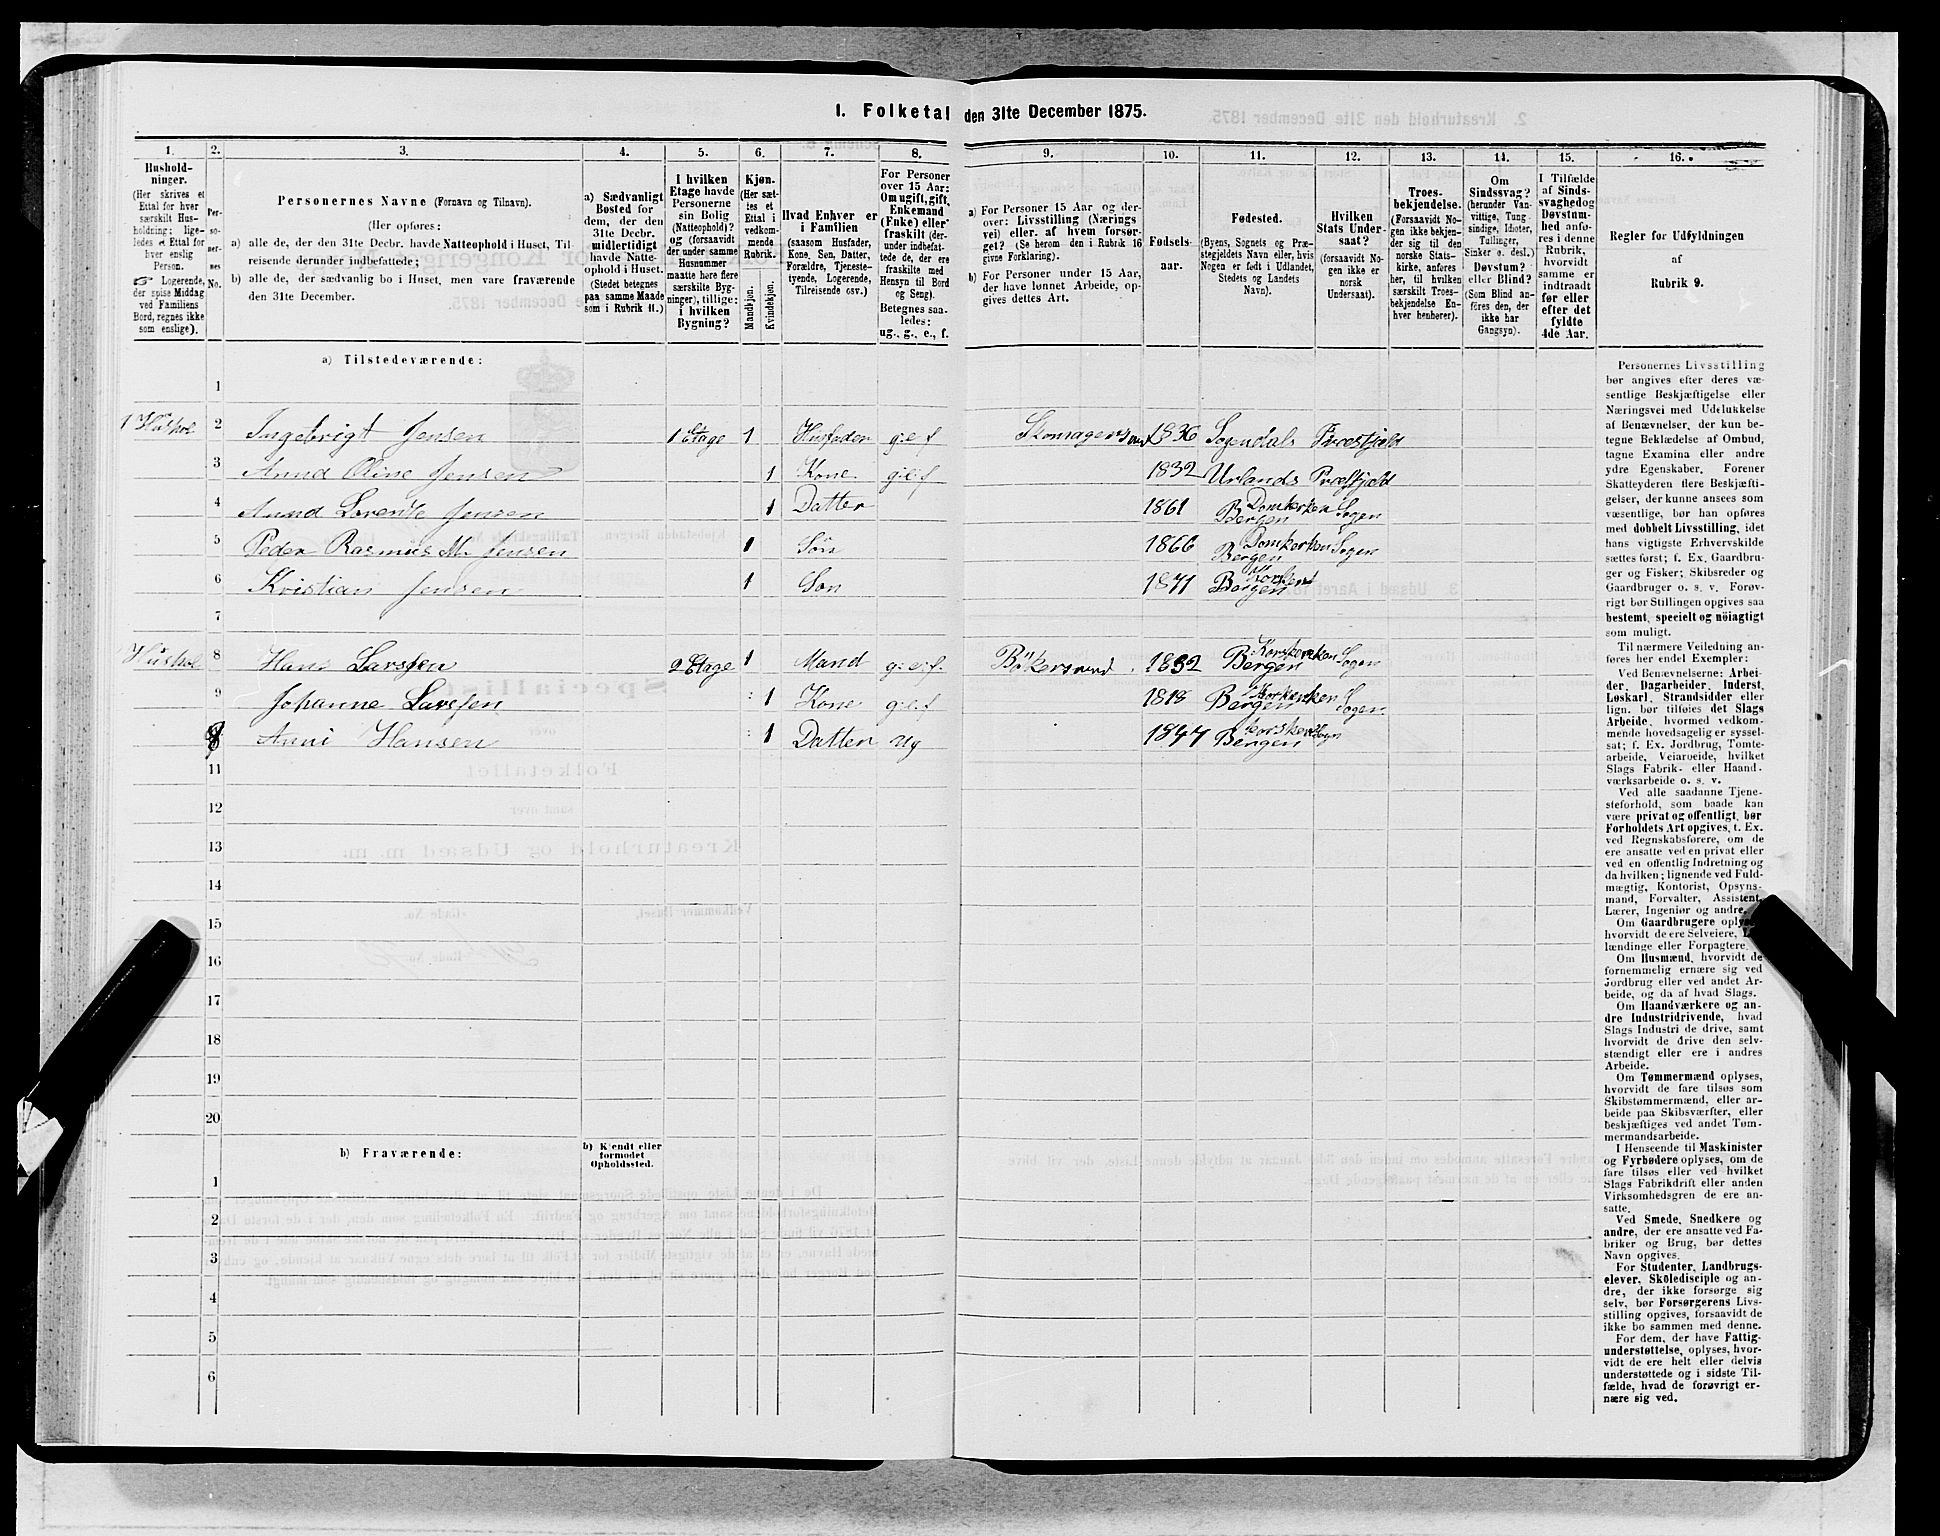 I. Folketal den 31te December 1875.
1.
Hushold-
ninger.
(Her skrives et
Ettal for hver
særskilt Hus-
holdning; lige-
ledes et Ettal for
hver enslig
Person.
Logerende,
der spise Middag
ved Familiens
Bord, regnes ikke
som enslige).
2.
Per-
so-
ner-
nes
No.
3.
Personernes Navne (Fornavn og Tilnavn).
(Her opføres:
a) alle de, der den 31te Decbr. havde Natteophold i Huset, Til-
reisende derunder indbefattede;
b) alle de, der sædvanlig bo i Huset, men vare fraværende
den 31te December.
4.
a) Sædvanligt
Bosted for
dem, der den
31te Decbr.
midlertidigt
havde Natte-
ophold i Huset.
(Stedet betegnes
paa samme Maade
som i Rubrik 11.)
5.
I hvilken
Etage havde
Personerne
sin Bolig
(Natteophold)?
og (forsaavidt
der under samme
Husnummer
maatte høre flere
særskilte Byg-
ninger), tillige:
i hvilken
Bygning?
6.
Kjøn.
(Her sæt-
tes et
Ettal i
vedkom-
mende
Rubrik.
Mandkjøn.
Kvindekjøn.
7.
Hvad Enhver er
i Familien
(saasom Husfader,
Kone, Søn, Datter,
Forældre, Tjeneste-
tyende, Logerende,
Tilreisende osv.)
8.
For Personer
over 15 Aar:
Om ugift, gift,
Enkemand
(Enke) eller
fraskilt (der-
under indbefat-
tede de, der ere
fraskilte med
Hensyn til Bord
og Seng).
Betegnes saa-
ledes:
ug., g., e., f.
9.
a) For Personer 15 Aar og der-
over: Livsstilling (Nærings
vei) eller. af hvem forsør-
get? (Se herom den i Rubrik 16
givne Forklaring).
b) For Personer under 15 Aar,
der have lønnet Arbeide, op-
gives dettes Art.
10.
Fødsels-
aar.
11.
Fødested.
(Byens, Sognets og Præ-
stegjeldets Navn eller, hvis
Nogen er født i Udlandet,
Stedets og Landets
Navn).
12.
Hvilken
Stats Under-
saat?
(forsaavidt No-
gen ikke er
norsk
Undersaat).
13.
Troes-
bekjendelse.
(Forsaavidt No-
gen ikke bekjen-
der sig til den
norske Stats-
kirke, anføres
her, til hvilken
særskilt Troes-
bekjendelse En-
hver henhører).
14.
Om
Sindssvag?
(herunder Van-
vittige, Tung-
sindige, Idioter,
Tullinger,
Sinker o. desl.)
Døvstum?
eller Blind?
(Som Blind an-
føres den, der
ikke har
Gangsyn).
15.
I Tilfælde
af Sinds-
svaghed og
Døvstum-
hed anfø-
res i denne
Rubrik,
hvorvidt
samme er
indtraadt
før eller
efter det
fyldte
4de Aar.
16.
Regler for Udfyldningen
af
Rubrik 9.
a) Tilstedeværende:
1
1 Hushol 2 Ingebrigt Jensen 1 Etage 1 Husfader g:e f Skomagersvend 1836 Sogendals Præstjeld
3 Annd Oline Jensen 1 Kone g:e:f 1832 Urlands Præstjeld
4 Annd Lorentse Jensen 1 Datter 1861 Bergen Domkerken Sogen
5 Peder Rasmus M. Jensen 1 Sön 1866 Bergen Domkerken Sogen
6 Kristian Jensen 1 Son 1871 Bergen
7
Hushol 8 Hans Larssen 2 Etage 1 Mand g:e:f. Bökersvend 1832 Bergen Korskerken Sogen
9 Johanne Larssen 1 Kone g:e:f 1818 Bergen Korskerken Sogen
Anni Hansen 1 Datter ug 1847 Bergen
11
12
13
14
15
16
17
18
19
20
b) Fraværende:
b) Kjendt eller
formodet
Opholdssted.
1
2
3
4
5
6
Personernes Livsstilling
bør angives efter deres væ-
sentlige Beskjæftigelse eller
Næringsvei med Udelukkelse
af Benævnelser, der kun be-
tegne Beklædelse af Ombud,
tagne Examina eller andre
ydre Egenskaber. Forener
Skatteyderen flere Beskjæfti-
gelser, der kunne ansees som
væsentlige, bør han opføres
med dobbelt Livsstilling, idet
hans vigtigste Erhvervskilde
sættes først; f. Ex. Gaardbru-
ger og Fisker; Skibsreder og
Gaardbruger o. s. v. Forøv-
rigt bør Stillingen opgives saa
bestemt, specielt og nöiagtigt
som muligt.
Til nærmere Veiledning an-
føres her endel Exempler:
Ved Benævnelserne: Arbei-
der, Dagarbeider, Inderst,
Løskarl, Strandsidder eller
lign. bør tilføies det Slags
Arbeide, hvormed vedkom-
mende hovedsagelig er syssel-
sat; f. Ex. Jordbrug, Tomte-
arbeide, Veiarbeide, hvilket
Slags Fabrik- eller Haand-
værksarbeide o. s. v.
Ved alle saadanne Tjene-
steforhold, som baade kan
være privat og offentligt, bør
Forholdets Art opgives, t. Ex.
ved Regnskabsførere, om de
ere ansatte ved en privat eller
ved en offentlig Indretning og
da hvilken; lignende ved Fuld-
mægtig, Kontorist, Opsyns-
mand, Forvalter, Assistent,
Lærer, Ingeniør og andre.
Om Gaardbrugere
hvorvidt de ere Selveiere,
lændinge eller Forpagtere.
Om Husmænd, hvorvidt de
fornemmelig ernære sig ved
Jordbrug eller ved andet Ar-
beide, og da af hvad Slags.
Om Haandværkere og an-
dre Industridrivende, hvad
Slags Industri de drive, samt
hvorvidt de drive den selv-
stændigt eller ere i andres
Arbeide.
Om Tømmermænd oplyses,
hvorvidt de fare tilsøs som
Skibstømmermænd, eller ar-
beide paa Skibsværfter, eller
beskjæftiges ved andet Tøm-
mermandsarbeide.
I Henseende til Maskinister
og Fyrbødere oplyses, om de
fare tilsøs eller ved hvilket
Slags Fabrikdrift eller anden
Virksomhedsgren de ere an-
satte.
Ved Smede, Snedkere og
andre, der ere ansatte ved Fa-
briker og Brug, bør dettes
Navn opgives.
For Studenter, Landbrugs-
elever, Skoledisciple og an-
dre, der ikke forsørge sig
selv, bør Forsørgerens Livs-
stilling opgives, forsaavidt de
ikke bo sammen med denne.
For dem, der have Fattig-
understøttelse, oplyses, hvor-
vidt de ere helt eller delvis
understøttede og i sidste Til-
fælde, hvad de forøvrigt er-
nære sig ved.